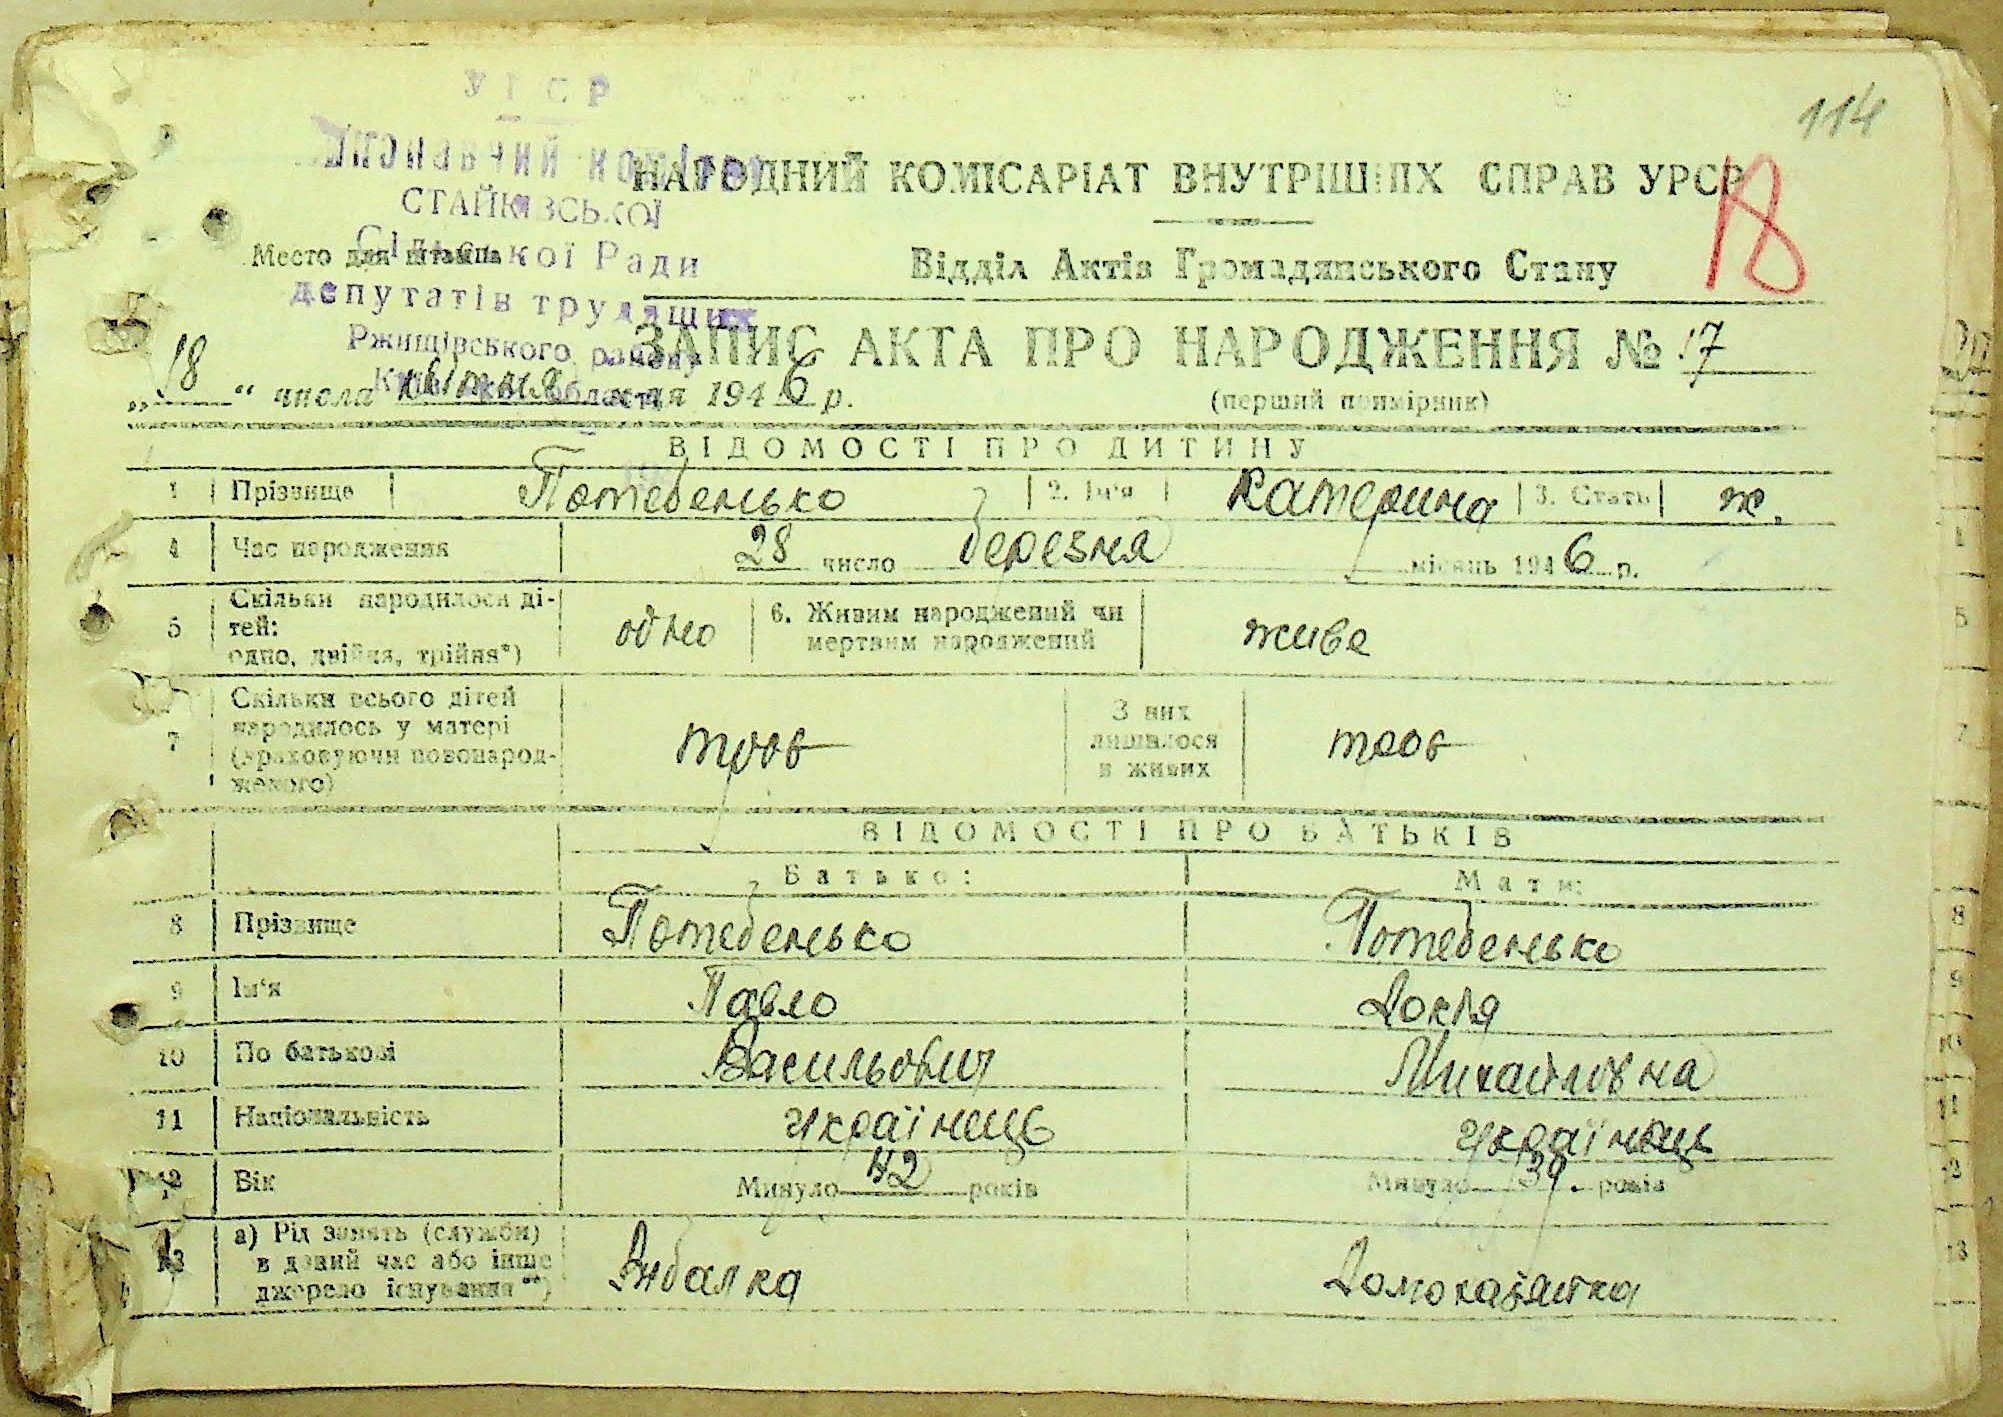 114
УРСР
Виконавчий комітет
СТАЙКІВСЬКОЇ
Сільської Ради
депутатів трудящих
Ржищівського району
Київської області
НАРОДНИЙ КОМІСАРІАТ ВНУТРІШНІХ СПРАВ УРСР
18
Место для штампа
Відділ Актів Громадянського Стану
ЗАПИС АКТА ПРО НАРОДЖЕННЯ № 17
„18“ числа квітня 1946 р.
(перший примірник)
ВІДОМОСТІ ПРО ДИТИНУ
1 Прізвище Потебенько 2. Ім'я Катерина 3. Стать ж.
4 Час народження 28 число березня місяць 1946 р.
5 Скільки народилося ді-
тей:
одно, двійня, трійня*) одно 6. Живим народжений чи
мертвим народжений живе
7 Скільки всього дітей
народилось у матері
(враховуючи новонарод-
женого) троє З них
лишилося
в живих троє
ВІДОМОСТІ ПРО БАТЬКІВ
Батько: Мати:
8 Прізвище Потебенько Потебенько
9 Ім'я Павло Докія
10 По батькові Васильович Михайловна
11 Національність українець українець
12 Вік Минуло 42 років Минуло 39. років
13 а) Рід занять (служби)
в даний час або інше
джерело існування**) Рибалка Домохазяйка